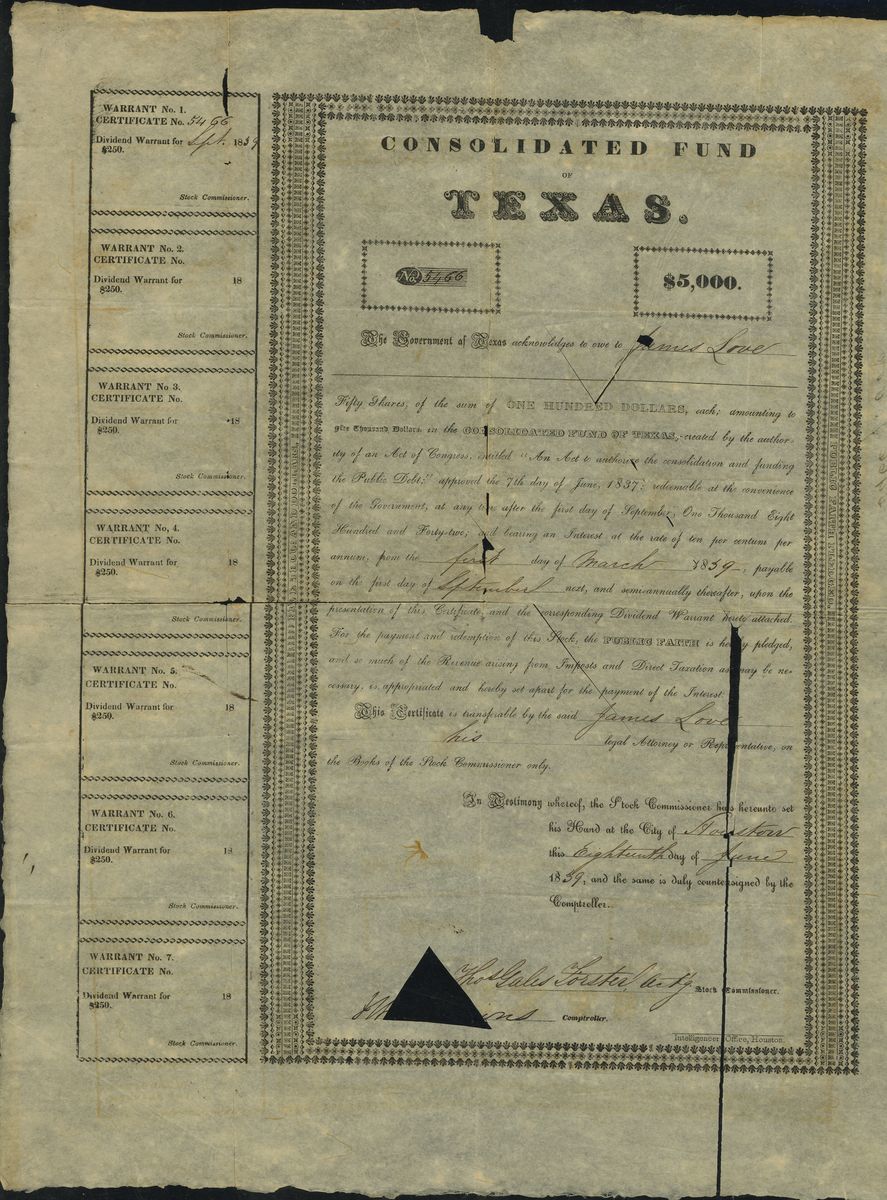 WARRANT No. 1.
CERTIFICATE No. 5466
Dividend Warrant for Sept. 1839
$250.
Stock Commissioner.
WARRANT No. 2.
CERTIFICATE No.
Dividend Warrant for 18
$250.
Stock Commissioner.
WARRANT No 3.
CERTIFICATE No.
Dividend Warrant for 18
$250.
Stock Commissioner.
WARRANT No, 4.
CERTIFICATE No.
Dividend Warrant for 18
$250.
Stock Commissioner.
WARRANT No. 5.
CERTIFICATE No.
Dividend Warrant for 18
$250.
Stock Commissioner.
WARRANT No. 6.
CERTIFICATE No.
Dividend Warrant for 18
$250.
Stock Commissioner.
WARRANT No. 7.
CERTIFICATE No.
Dividend Warrant for 18
$250.
Stock Commissioner.
CONSOLIDATED FUND
OF
TEXAS.
No. 5466
$5,000.
The Government of Texas acknowledges to owe to James Love
Fifty Shares, of the sum of ONE HUNDRED DOLLARS, each; amounting to
Five Thousand Dollars in the CONSOLIDATED FUND OF TEXAS, created by the author-
ity of an Act of Congress, entitled "An Act to authorize the consolidation and funding
the Public Debt;" approved the 7th day of June, 1837; redeemable at the convenience
of the Government, at any time after the first day of September, One Thousand Eight
Hundred and Forty-two; and bearing an Interest at the rate of ten per centum per
annum, from the first day of March 1839, payable
on the first day of September next, and semi-annually thereafter, upon the
presentation of this Certificate, and the corresponding Dividend Warrant hereto attached.
For the payment and redemption of this Stock, the PUBLIC FAITH is hereby pledged,
and so much of the Revenue arising from Imposts and Direct Taxation as may be ne-
cessary, is appropriated and hereby set apart for the payment of the Interest.
This Certificate is transferable by the said James Love
his legal Attorney or Representative, on
the Books of the Stock Commissioner only.
In Testimony whereof, the Stock Commissioner has hereunto set
his Hand at the City of Houston
this Eighteenth day of June
1839, and the same is duly countersigned by the
Comptroller.
Thos Gales Forster, Actg Stock Commissioner.
Comptroller.
Intelligencer Office, Houston.